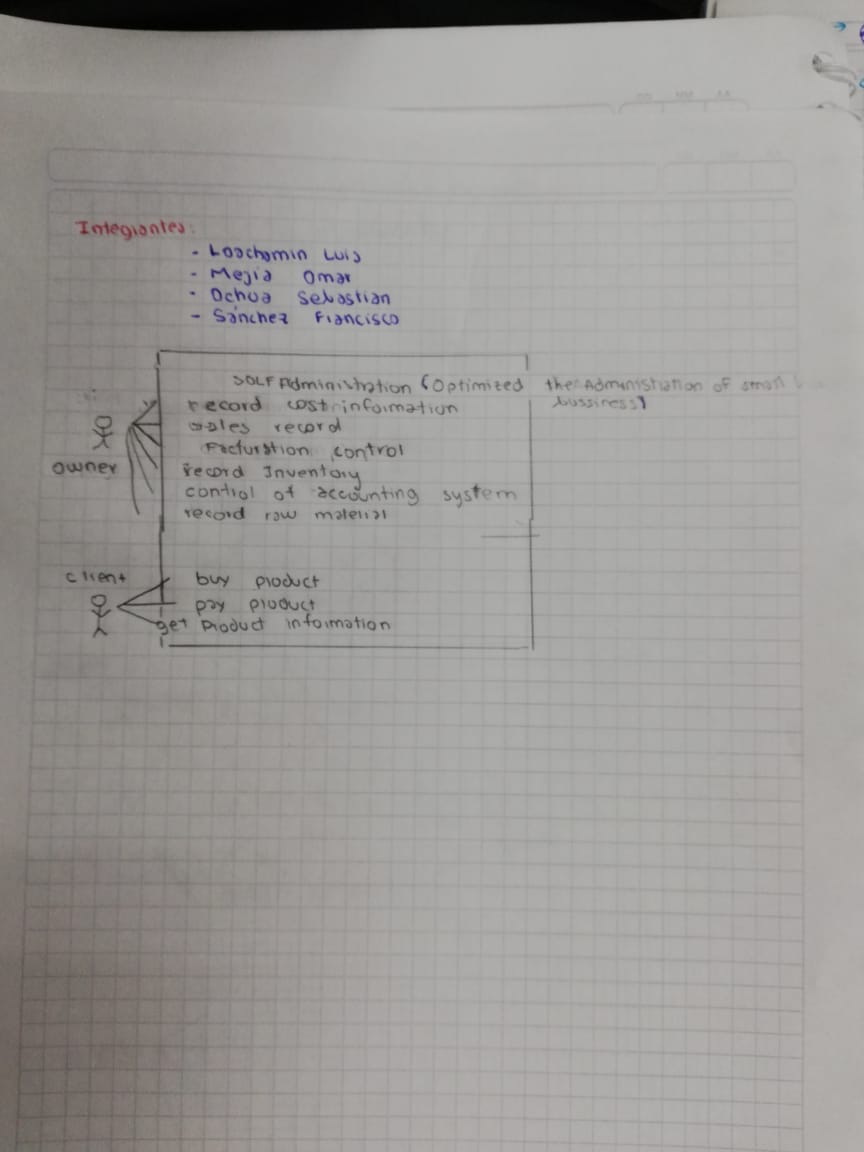 Integrantes:
- Loachamin Luis
- Mejia Omar
- Ochoa Sebastian
- Sánchez Francisco
SOLF Administration (Optimized the Administration of small bussiness)
record cost information
sales record
Facturation control
owner
record Inventory
control of accounting system
record raw material
client
buy product
pay product
get product information